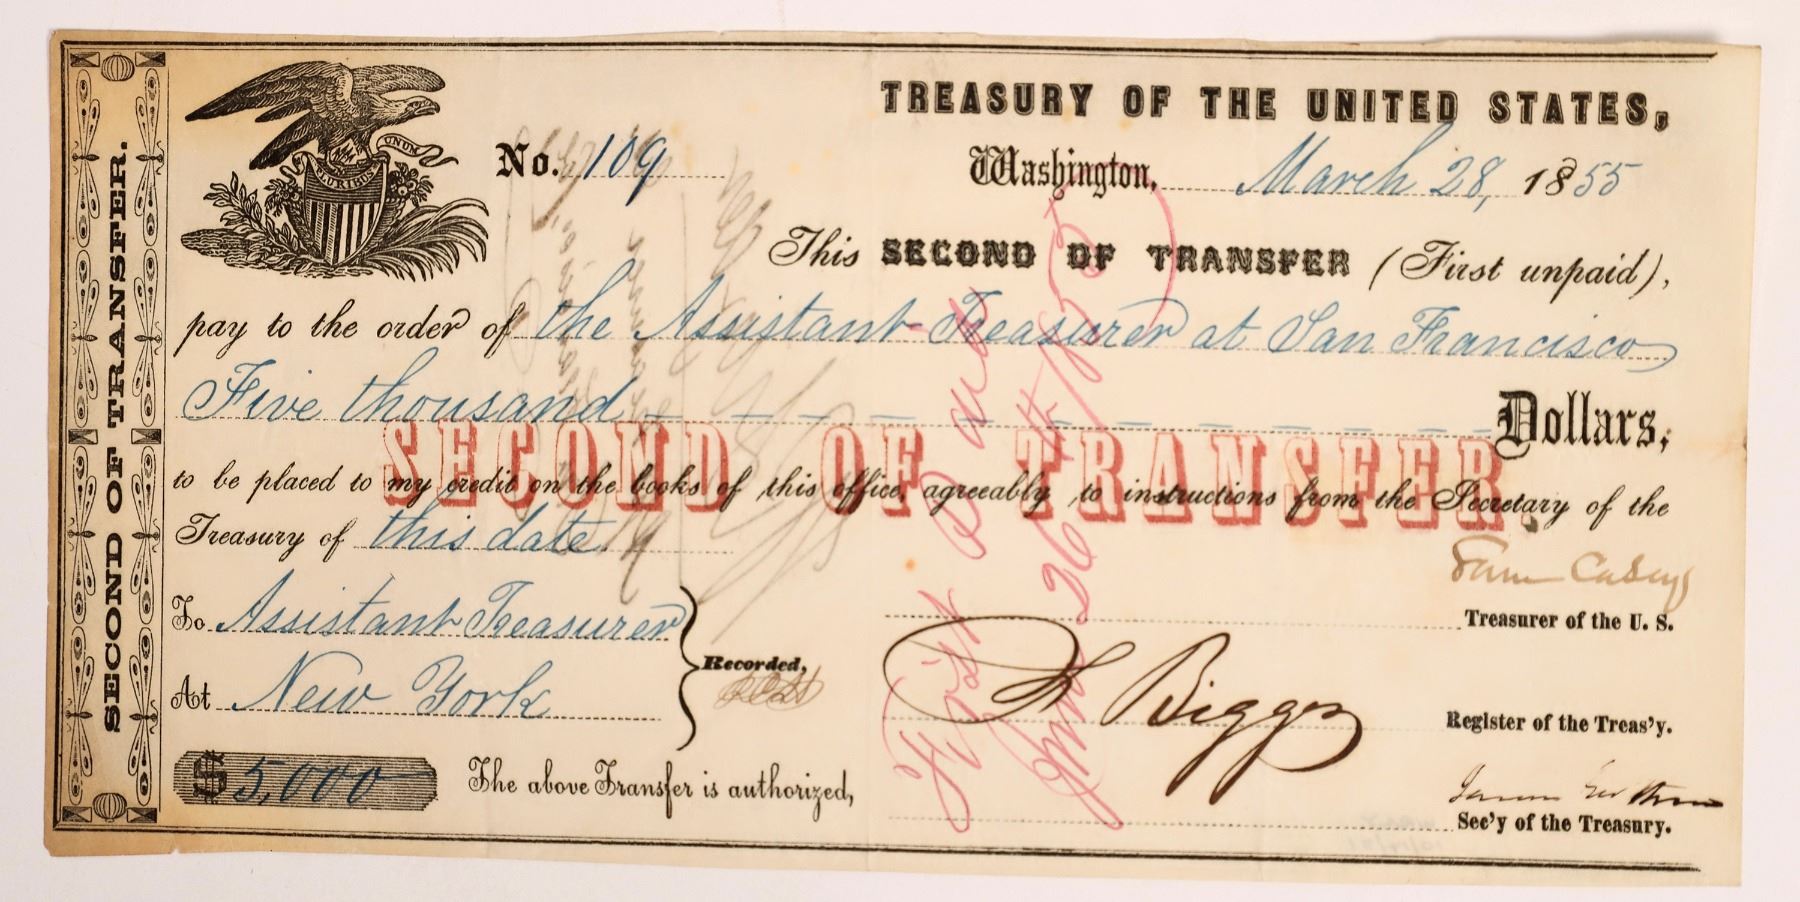 SECOND OF TRANSFER.
UNUM
PLURIBUS
TREASURY OF THE UNITED STATES,
No. 109
Washington, March 28, 1855
This SECOND OF TRANSFER (First unpaid),
pay to the order of the Assistant Treasurer at San Francisco
Five thousand Dollars,
SECOND OF TRANSFER.
to be placed to my credit on the books of this office, agreeably to instructions from the Secretary of the
Treasury of this date
Sam Casey
Treasurer of the U. S.
To Assistant Treasurer
At New York
Recorded,
F Bigger
Register of the Treas'y.
$ 5,000
The above Transfer is authorized,
James Guthrie
Sec'y of the Treasury.
First paid
June 26th 1855